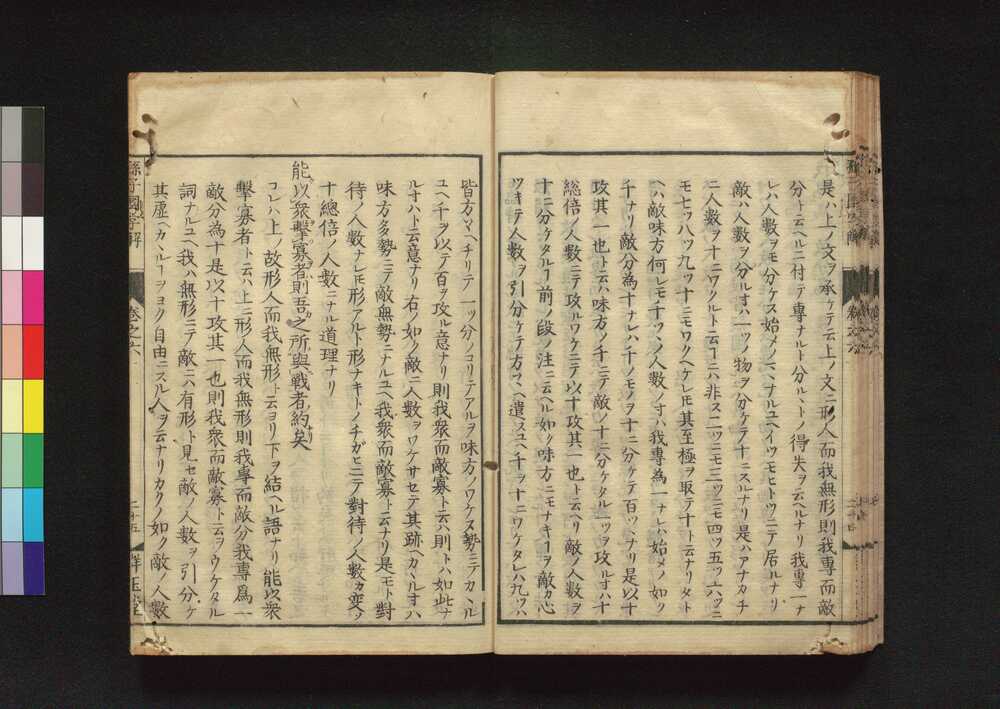 是ハ上ノ文ヲ承ケテ云上ノ文ニ形人而我無形則我專而敵
分ト云ヘルニ付テ專ナルト分ルヽトノ得失ヲ云ヘルナリ我專一ナ
レハ人數ヲモ分ケス始メノマヽナルユヘイツモヒトツニテ居ルナリ
敵ハ人數ヲ分ルヿハ一ツノ物ヲ分ケテ十ニスルナリ是ハアナカチ
ニ人數ヲ十ニワクルト云ヿニハ非ス二ツニモ三ツニモ四ツ五ツ六ツニ
モ七ツ八ツ九ツ十ニモワクヘケレ𪜈其至極ヲ取テ十ト云ナリタト
ヘハ敵味方何レモ千ツヽノ人數ノ寸ハ我專為一ナレハ始メノ如ク
千ナリ敵分為十ナレハ千ノモノヲ十ニ分ケテ百ツヽナリ是以十
攻其一也ト云ハ味方ノ千ニテ敵ノ十ニ分ケタル一ツヲ攻ル寸ハ十
総倍ノ人數ニテ攻ルワケニテ以十攻其一也ト云ヘリ敵ノ人數ヲ
十ニ分ケタルヿ前ノ段ノ注ニ云ヘル如ク味方ニモナキヿヲ敵カ心
ツキテ人數ヲ引分ケテ方〻ヘ遣スユヘ千ヲ十ニワケタレハ九ツハ
皆方〻ヘチリテ一ツ分ノコリテアルヲ味方ノワケヌ勢ニテカヽル
ユヘ千ヲ以テ百ヲ攻ル意ナリ則我衆而敵寡ト云ハ則トハ如此ナ
ル寸ハト云意ナリ右ノ如ク敵ニ人數ヲワケサセテ其跡ヘカヽル寸ハ
味方多勢ニテ敵無勢ニナルユヘ我衆而敵寡ト云ナリ是モト對
待ノ人數ナレ𪜈形アルト形ナキトノチガヒニテ對待ノ人數カ変シ
十總倍ノ人數ニナル道理ナリ
能以衆擊寡者則吾之所與戰者約矣
コレハ上ノ故形人而我無形ト云ヨリ下ヲ結ヘル語ナリ能以衆
擊寡者ト云ハ上ニ形人而我無形則我專而敵分我專爲一
敵分為十是以十攻其一也則我衆而敵寡ト云ヲウケタル
詞ナルユヘ我ハ無形ニテ敵ニハ有形ト見セ敵ノ人數ヲ引分ケ
其虚ヘカヽルヿヲヨク自由ニスル人ヲ云ナリカクノ如ク敵ノ人數
孫子國字解
卷之六
二十五
群玉堂